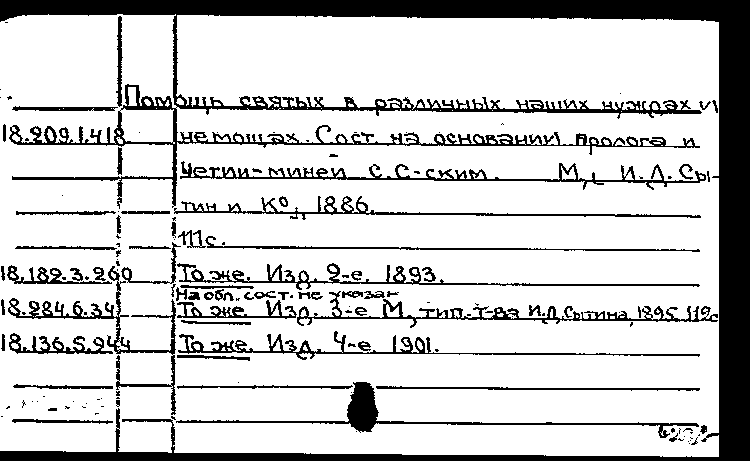 Помощь святых в различных наших нуждах и
18.209.1.418 немощах. Сост. на основании пролога и
Четии-миней С. С-ским. М., И.Д. Сы-
тин и К°., 1886.
111с.
18.182.3.260 То же. Изд. 2-е. 1893.
На обл. сост. не указан
18.284.6.34 То же. Изд. 3-е М., тип. т-ва И.Д. Сытина, 1895. 112с
18.136.5.244 То же. Изд. 4-е. 1901.